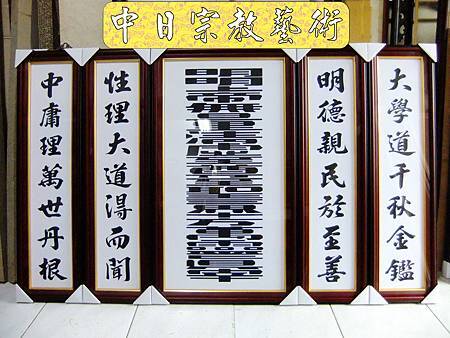 中日宗教藝術
大學道千秋金鑑
明德親民於至善
性理大道得而聞
中庸理萬世丹根